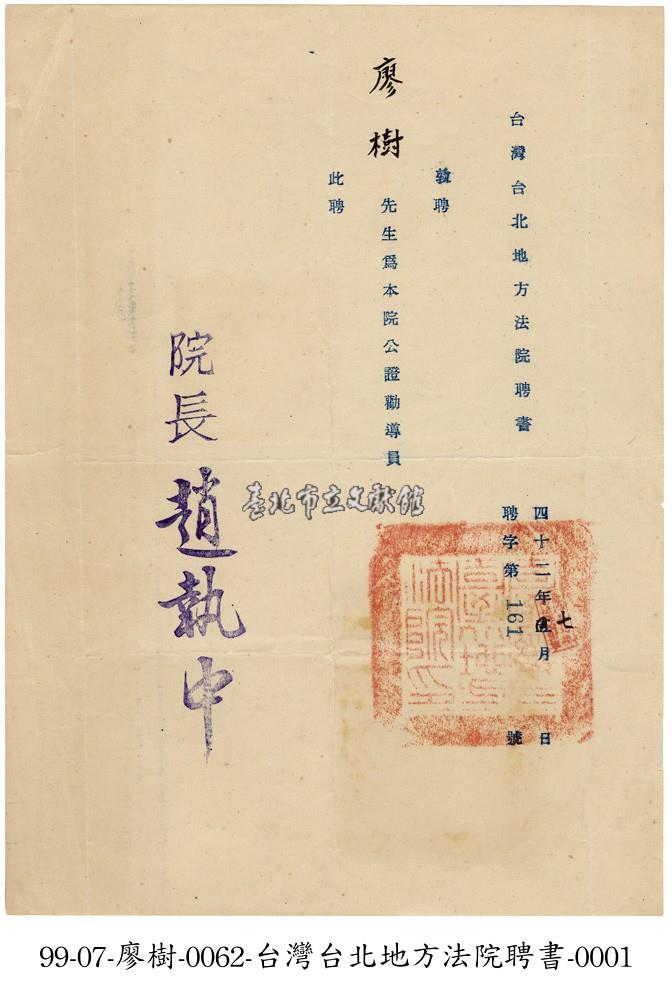 台灣台北地方法院聘書
四十二年七月 日
聘字第161號
敦聘
廖樹先生爲本院公證勸導員
此聘
院長趙執中
臺北市立文獻館
99-07-廖樹-0062-台灣台北地方法院聘書-0001